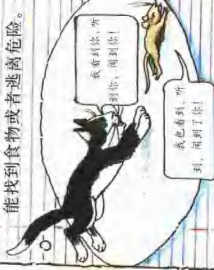 能找到食物或者逃离危险。
我看到你、听
到你、闻到你！
我也看到、听
到、闻到了你！